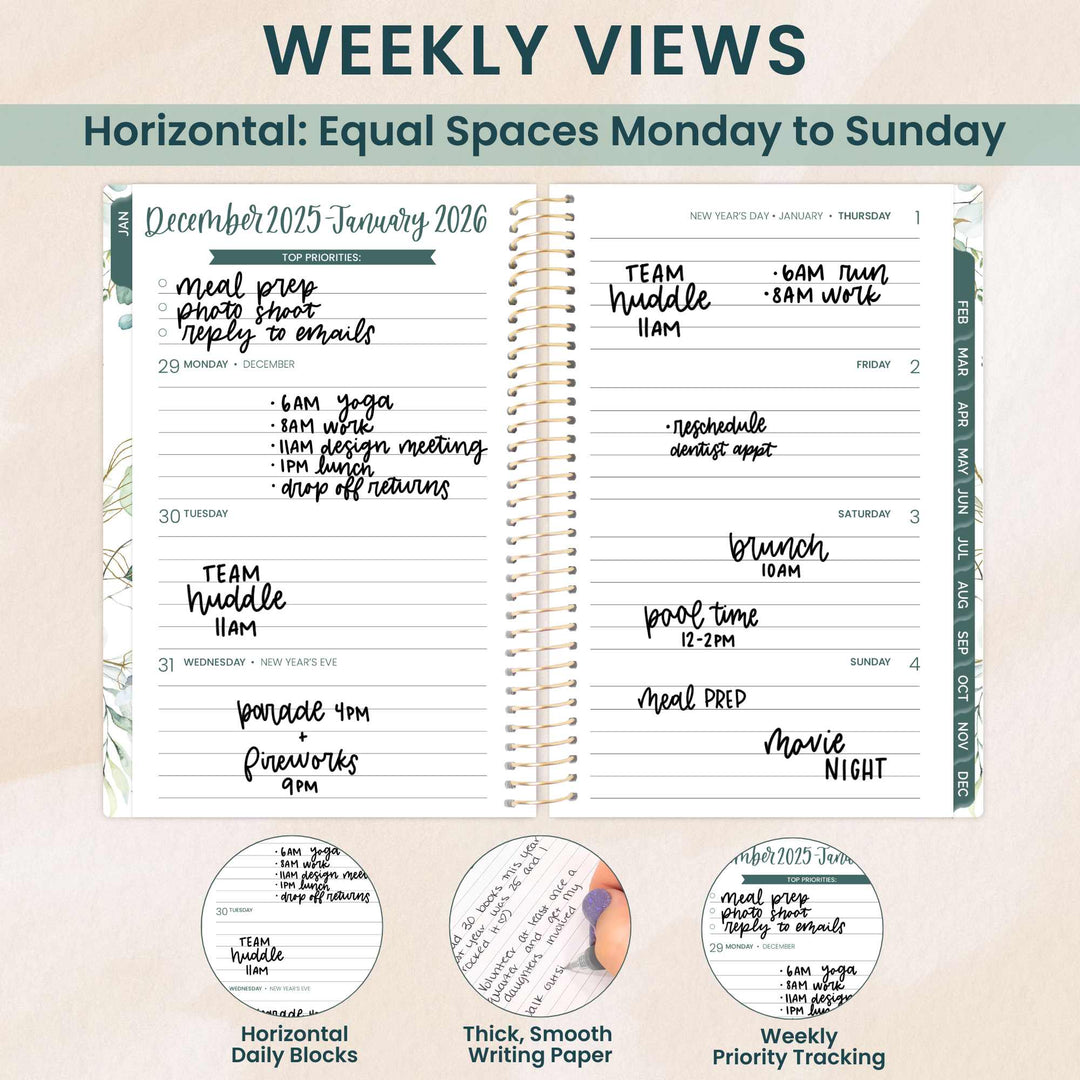 WEEKLY VIEWS
Horizontal: Equal Spaces Monday to Sunday
JAN
December 2025-January 2026
TOP PRIORITIES:
meal prep
photo shoot
reply to emails
29 MONDAY • DECEMBER
• 6AM yoga
• 8AM work
• 11AM design meeting
• 1PM lunch
• drop off returns
30 TUESDAY
TEAM
huddle
11AM
31 WEDNESDAY • NEW YEAR'S EVE
parade 4PM
+
fireworks
9PM
NEW YEAR'S DAY • JANUARY • THURSDAY 1
TEAM
huddle
11AM
• 6AM run
• 8AM work
FRIDAY 2
• reschedule
dentist appt
SATURDAY 3
brunch
10AM
pool time
12-2PM
SUNDAY 4
meal PREP
movie
NIGHT
FEB
MAR
APR
MAY
JUN
JUL
AUG
SEP
OCT
NOV
DEC
• 6AM yoga
• 8AM work
• 11AM design meet
• 1PM lunch
• drop off returns
30 TUESDAY
TEAM
huddle
11AM
WEDNESDAY • NEW YEAR'S EVE
Horizontal
Daily Blocks
30 books this year
year was 25 and I
rocked it ♡)
Volunteer at least once a
quarter and get my
daughters involved
Thick, Smooth
Writing Paper
mber 2025-Janu
TOP PRIORITIES:
meal prep
photo shoot
reply to emails
29 MONDAY • DECEMBER
• 6AM yoga
• 8AM work
• 11AM design
• 1PM lun
Weekly
Priority Tracking